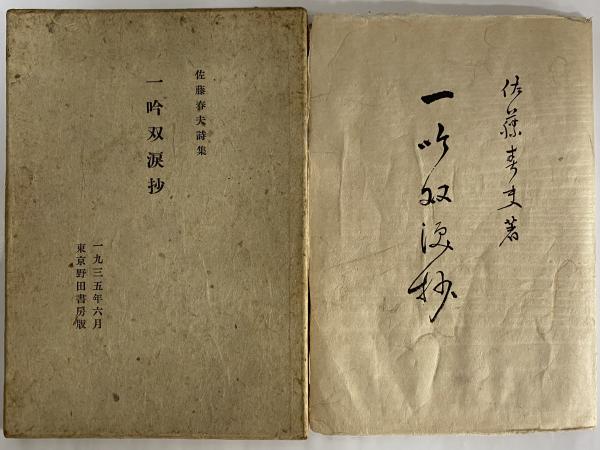 佐藤春夫詩集
一吟双涙抄
一九三五年六月
東京野田書房版
佐藤春夫著
一吟双涙抄